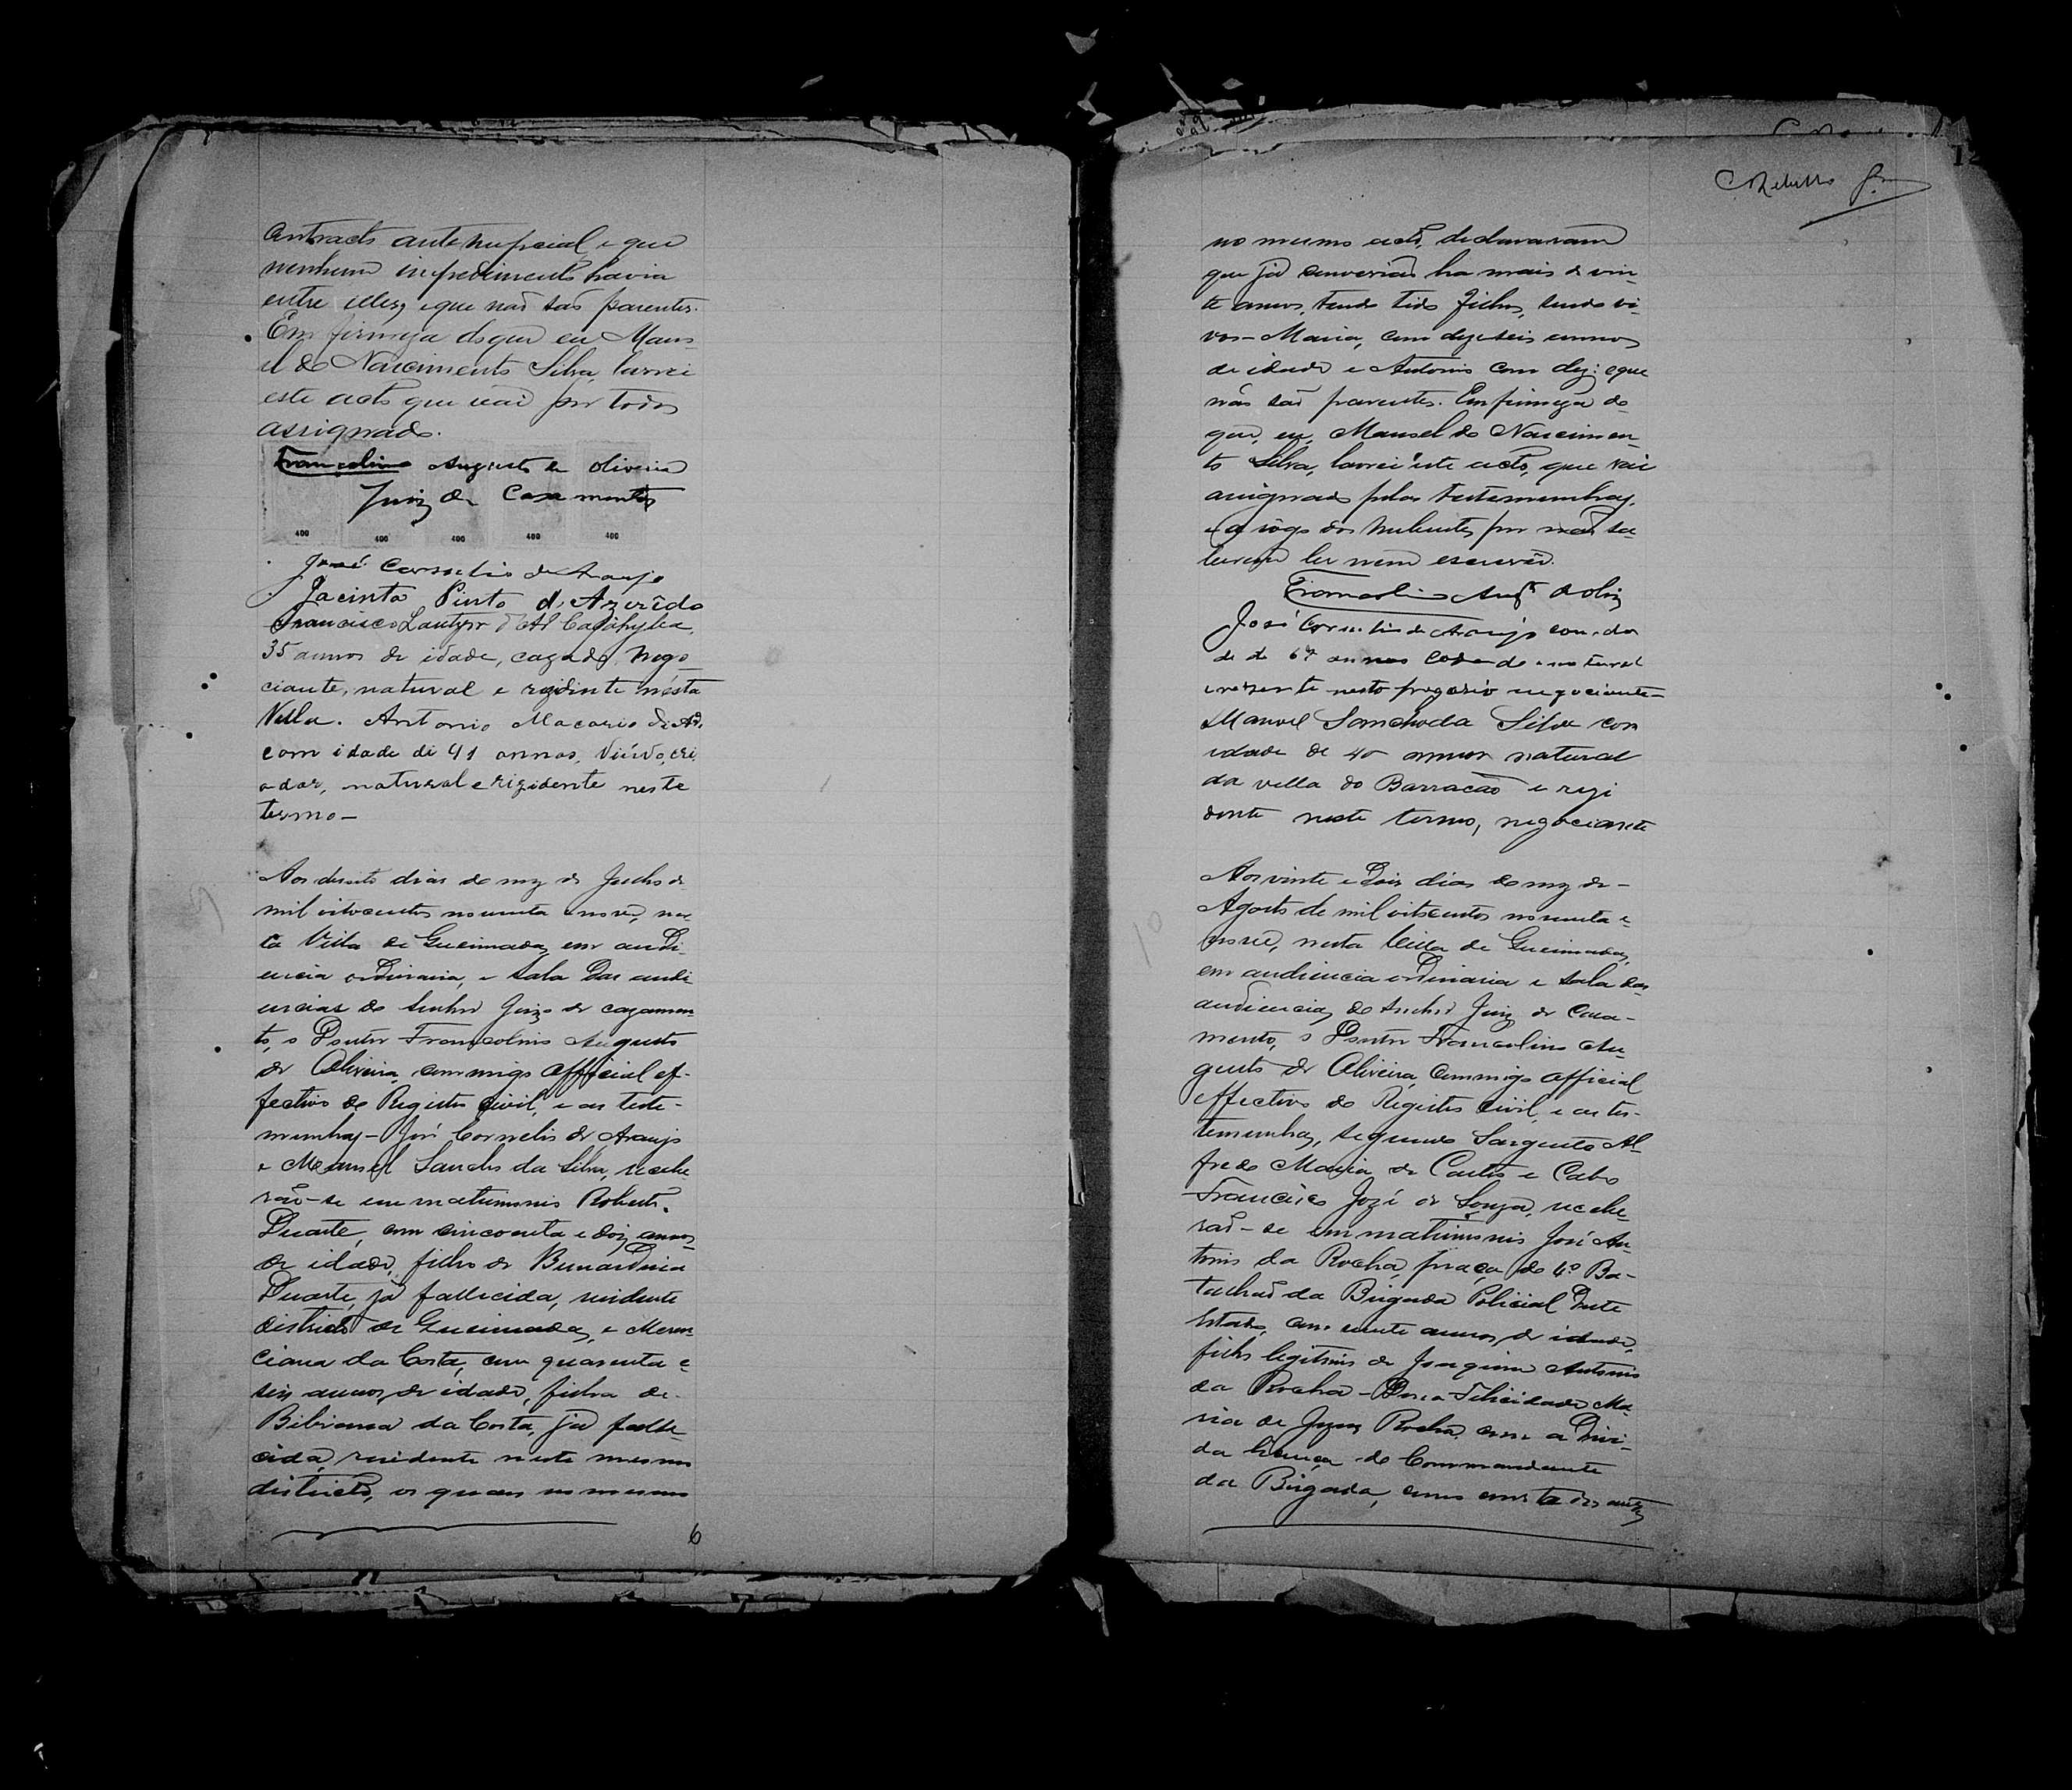 contracto antenupcial, e que
nenhum impedimento havia
entre elles, e que não são parentes.
Em firmeza do que eu Mano-
el do Nascimento Silva, lavrei
este acto que vai por todos
assignado.
Francolino Augusto de Oliveira
Juiz de Casamentos
400 400 400 400 400
José Cornelio de Araujo
Jacinto Pinto d'Azevêdo
Francisco
35 annos de idade, cazado, nego-
ciante, natural e rezidente nésta
Villa. Antonio Macario
com idade de 41 annos, Viúvo, cri-
ador, natural e rizidente neste
termo—
Aos dezoito dias do mez de Julho de
mil oitocentos noventa e nove, nes-
ta Villa de Queimadas, em audi-
encia ordinaria, e sala das audi-
encias do Senhor Juiz de cazamen-
to, o Doutor Francolino Augusto
de Oliveira, commigo official ef-
fectivo do Registro Civil, e as teste-
munhas— José Cornelio de Araujo
e Manoel Sanches da Silva, recebe-
rão-se em matrimonio Roberto
Duarte, com cincoenta e dois annos
de idade, filho de Bernardina
Duarte, já fallecida, residente
districto de Queimadas, e
da Costa, com quarenta e
seis annos de idade, filha de
Bibiana da Costa, já falle-
cida, residente neste mesmo
districto, os quaes no mesmo
6
12
no mesmo acto, declararam
que já conviviam ha mais de vin-
te annos, tendo tido filhos, sendo vi-
vos— Maria, com dezeseis annos
de idade e Antonio com dez: e que
não são parentes. Em firmeza do
que, eu, Manoel do Nascimen-
to Silva, lavrei este acto, que vai
assignado pelas testemunhas,
e a rôgo dos nubentes, por não sa-
berem ler nem escrever.
Francolino Augto de Olivª
José Cornelio de Araujo com
de de annos natural
negociante—
Manoel Sanches da Silva com
idade de 40 annos natural
da villa do Barracão e rezi
dente neste termo, negociante
Aos vinte e dois dias do mez de—
Agosto de mil oitocentos noventa e
nove, nesta Villa de Queimadas,
em audiencia ordinaria e sala das
audiencias do Senhor Juiz de Casa-
mento, o Doutor Francolino Au-
gusto de Oliveira, commigo official
effectivo do Registro Civil, e as tes-
temunhas, segundo Sargento Al-
fredo Maria de Castro e Cabo
Francisco José de Souza, recebe-
rão-se em matrimonio José An-
tonio da Rocha, praça do 4º Ba-
talhão da Brigada Policial deste
Estado, com vinte annos de idade,
filho legitimo de Joaquim Antonio
da Rocha— Dona Felicidade Ma-
ria de Jezus Rocha, com a devi-
da licença do Commandante
da Brigada, como consta dos autos